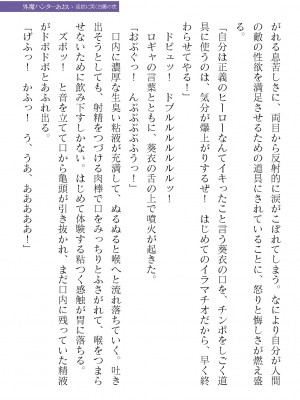 外魔ハンターあおい
がれる息苦しさに、両目から反射的に涙がこぼれてしまう。なにより自分が人間
の敵の性欲を満足させるための道具にされていることに、怒りと悔しさが燃え盛
る。
「自分は正義のヒーローなんてイキったこと言う葵衣の口を、チンポをしごく道
具に使うのは、気分が爆上がりするぜ！　はじめてのイラマチオだから、早く終
わらせてやる！」
ドビュッ！　ドブルルルルルルッ！
ロギャの言葉とともに、葵衣の舌の上で噴火が起きた。
「おぶぐっ！　んぶぶぶぶふうっ！」
口内に濃厚な生臭い粘液が充満して、ぬるぬると喉へと流れ落ちていく。吐き
出そうとしても、射精をつづける肉棒で口をみっちりとふさがれて、喉をつまら
せないために飲み下すしかない。はじめて体験する粘つく感触が胃に落ちる。
ズボッ！　と音を立てて口から亀頭が引き抜かれ、まだ口内に残っていた精液
がドボドボとあふれ出る。
「げふっ！　かふっ　う、うあ、ああああ！」